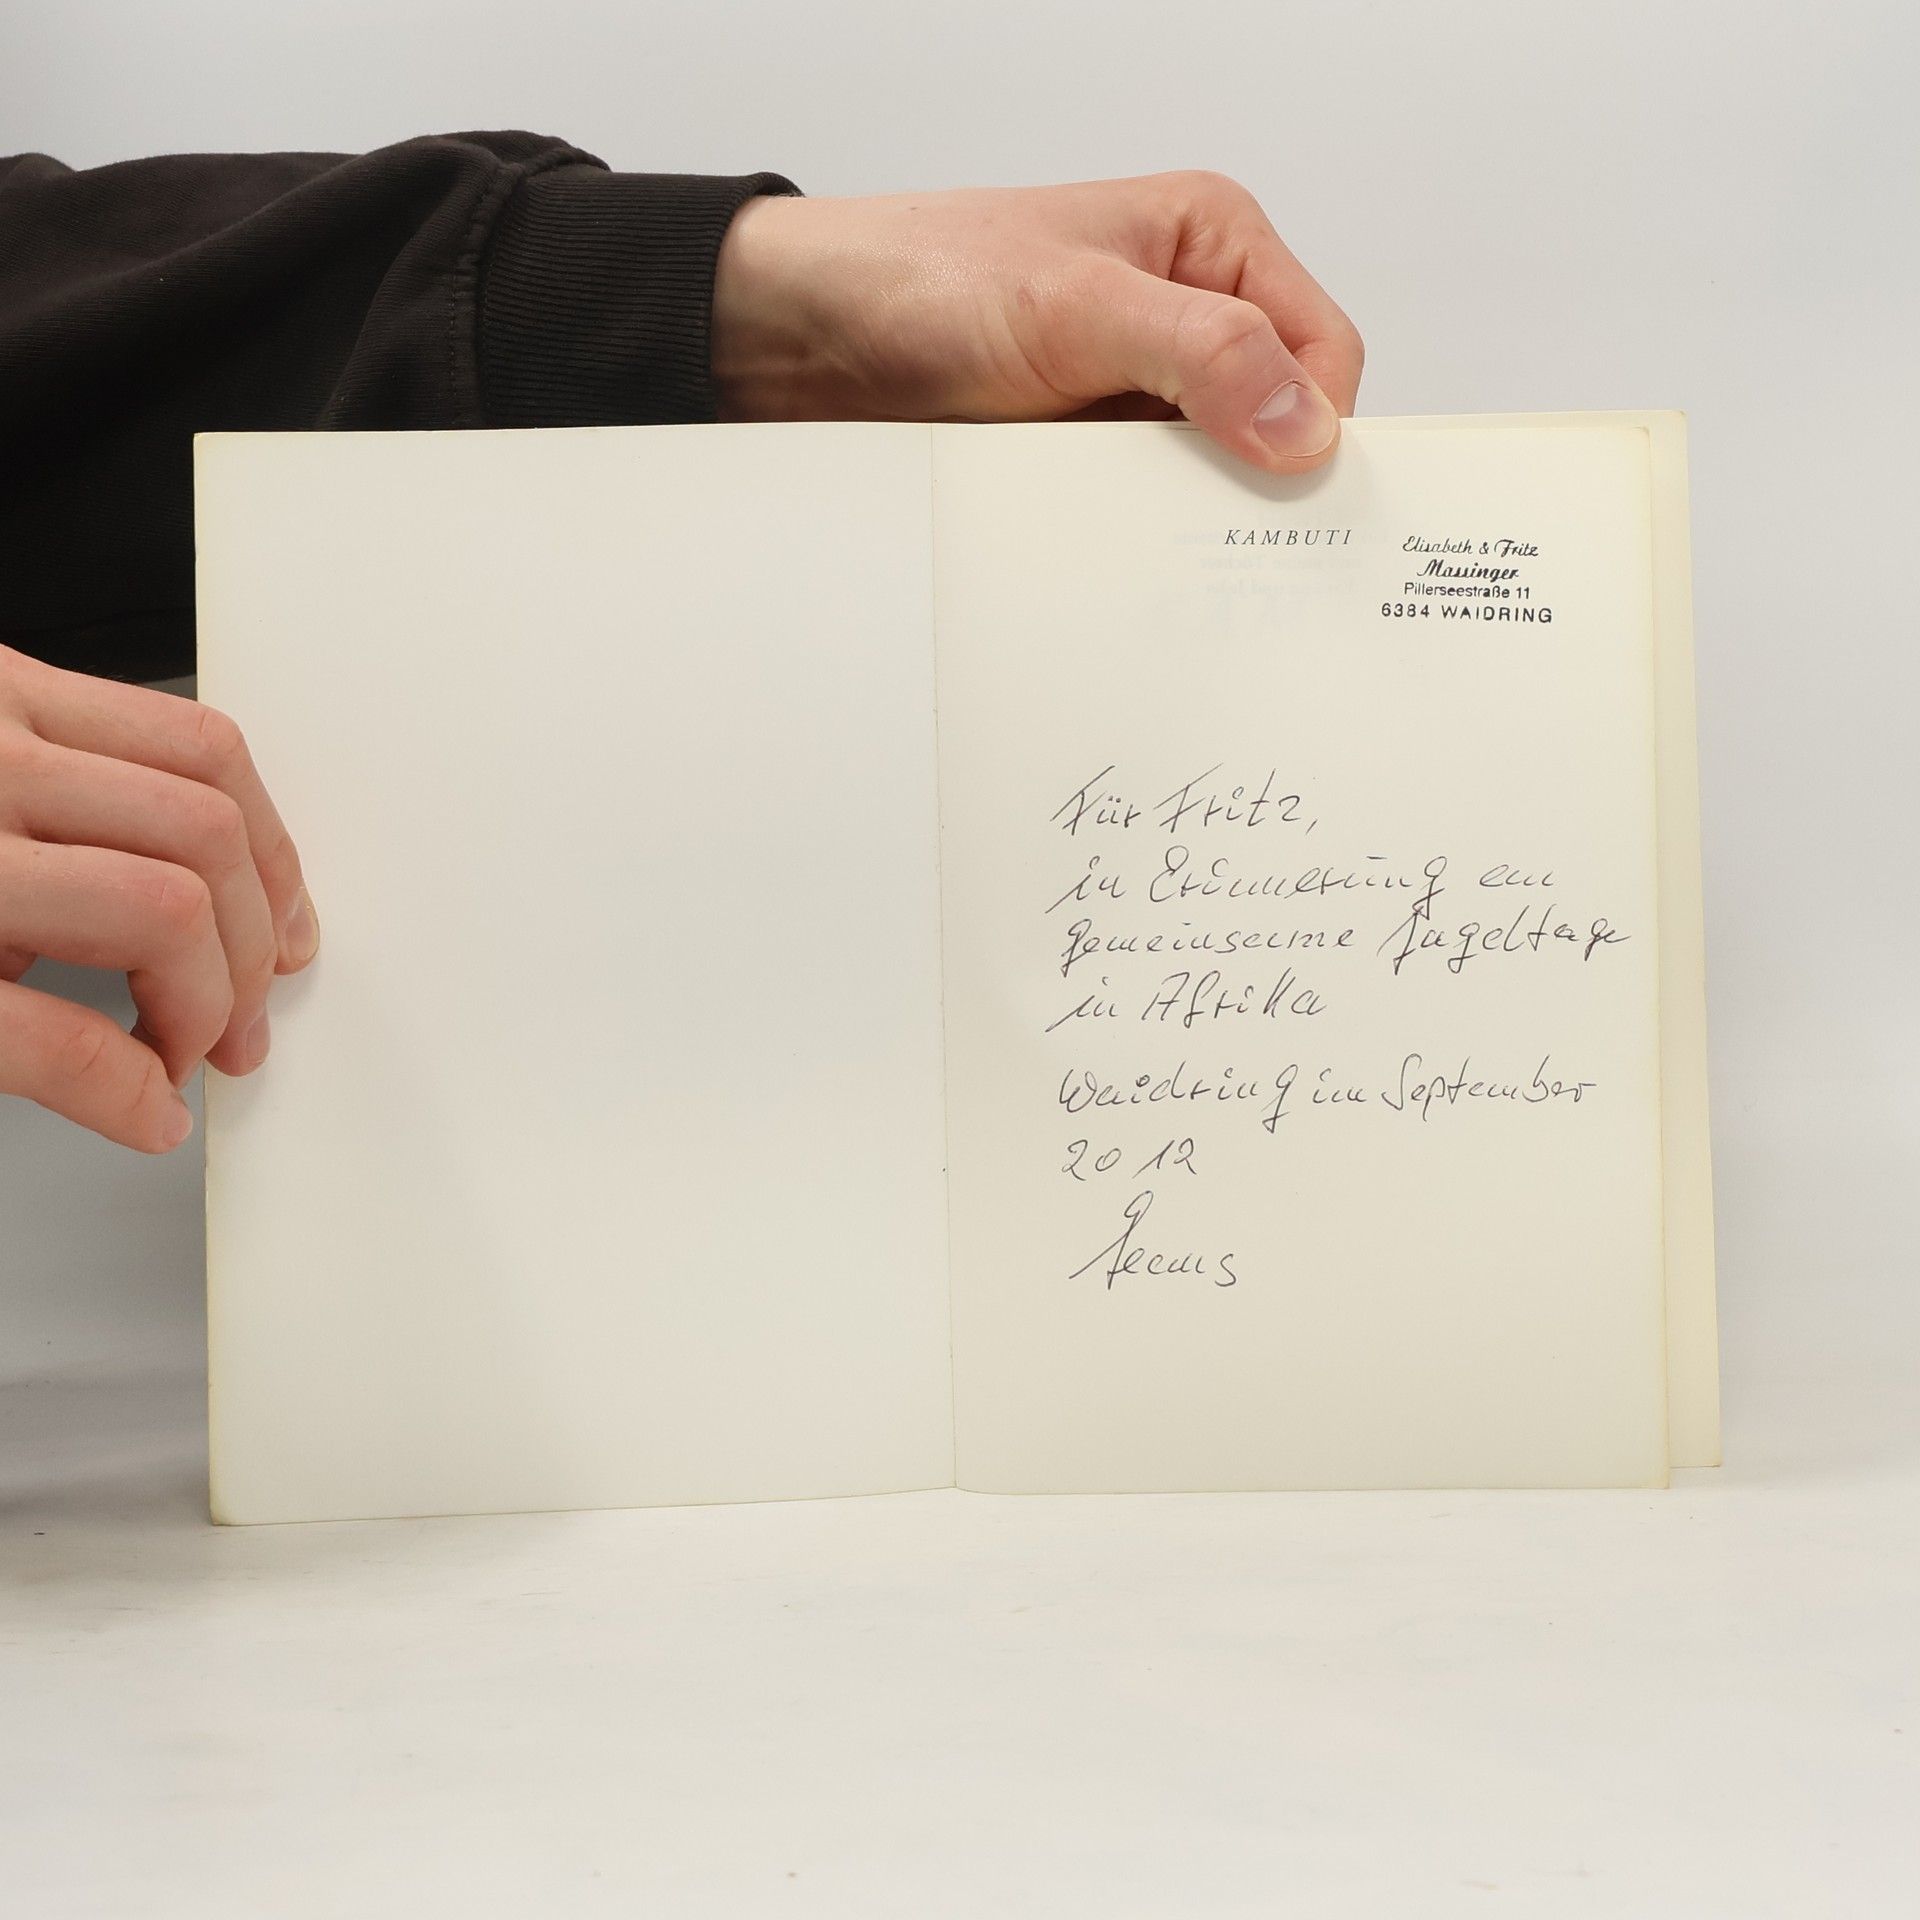 KAMBUTI
Elisabeth & Fritz
Massinger
Pillerseestraße 11
6384 WAIDRING
Für Fritz,
in Erinnerung an
gemeinsame Jagdtage
in Afrika
Waidring im September
2012